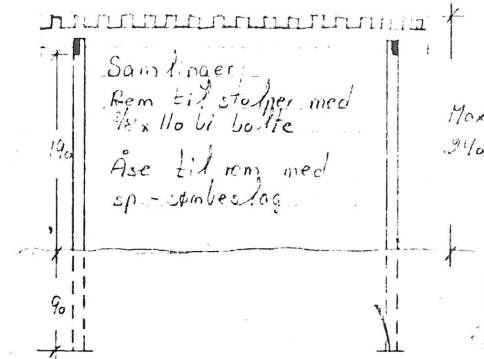 Samlinger:
Rem til stolper med
3/8 x 110 bi bolte
Åse til rem med
sp-sømbeslag
Max
240
190
90